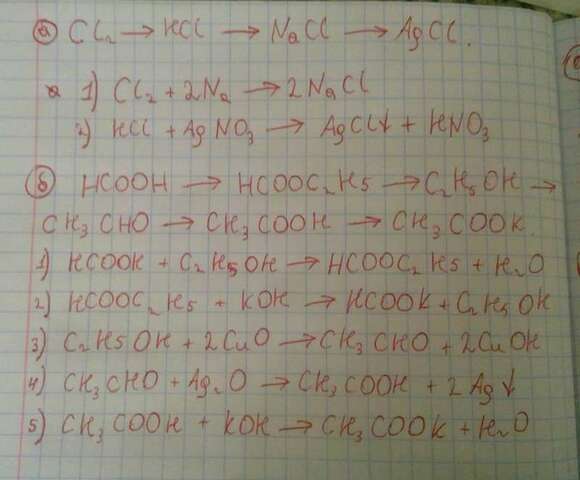 а) Cl₂ → HCl → NaCl → AgCl.
1) Cl₂ + 2Na → 2NaCl
2) HCl + AgNO₃ → AgCl↓ + HNO₃
б) HCOOH → HCOOC₂H5 → C₂H5OH →
CH₃CHO → CH₃COOH → CH₃COOK.
1) HCOOH + C₂H5OH → HCOOC₂H5 + H₂O
2) HCOOC₂H5 + KOH → HCOOK + C₂H5OH
3) C₂H5OH + 2CuO → CH₃CHO + 2CuOH
4) CH₃CHO + Ag₂O → CH₃COOH + 2Ag↓
5) CH₃COOH + KOH → CH₃COOK + H₂O